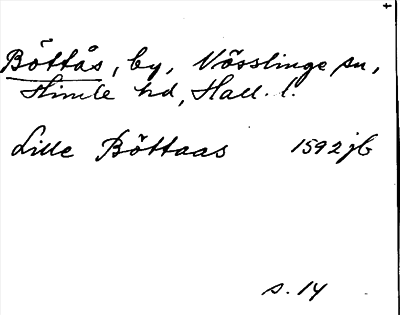 Böttås, by, Vösslinge sn,
Himle hd, Hall. l.
Lille Böttaas 1592 jb
s. 14